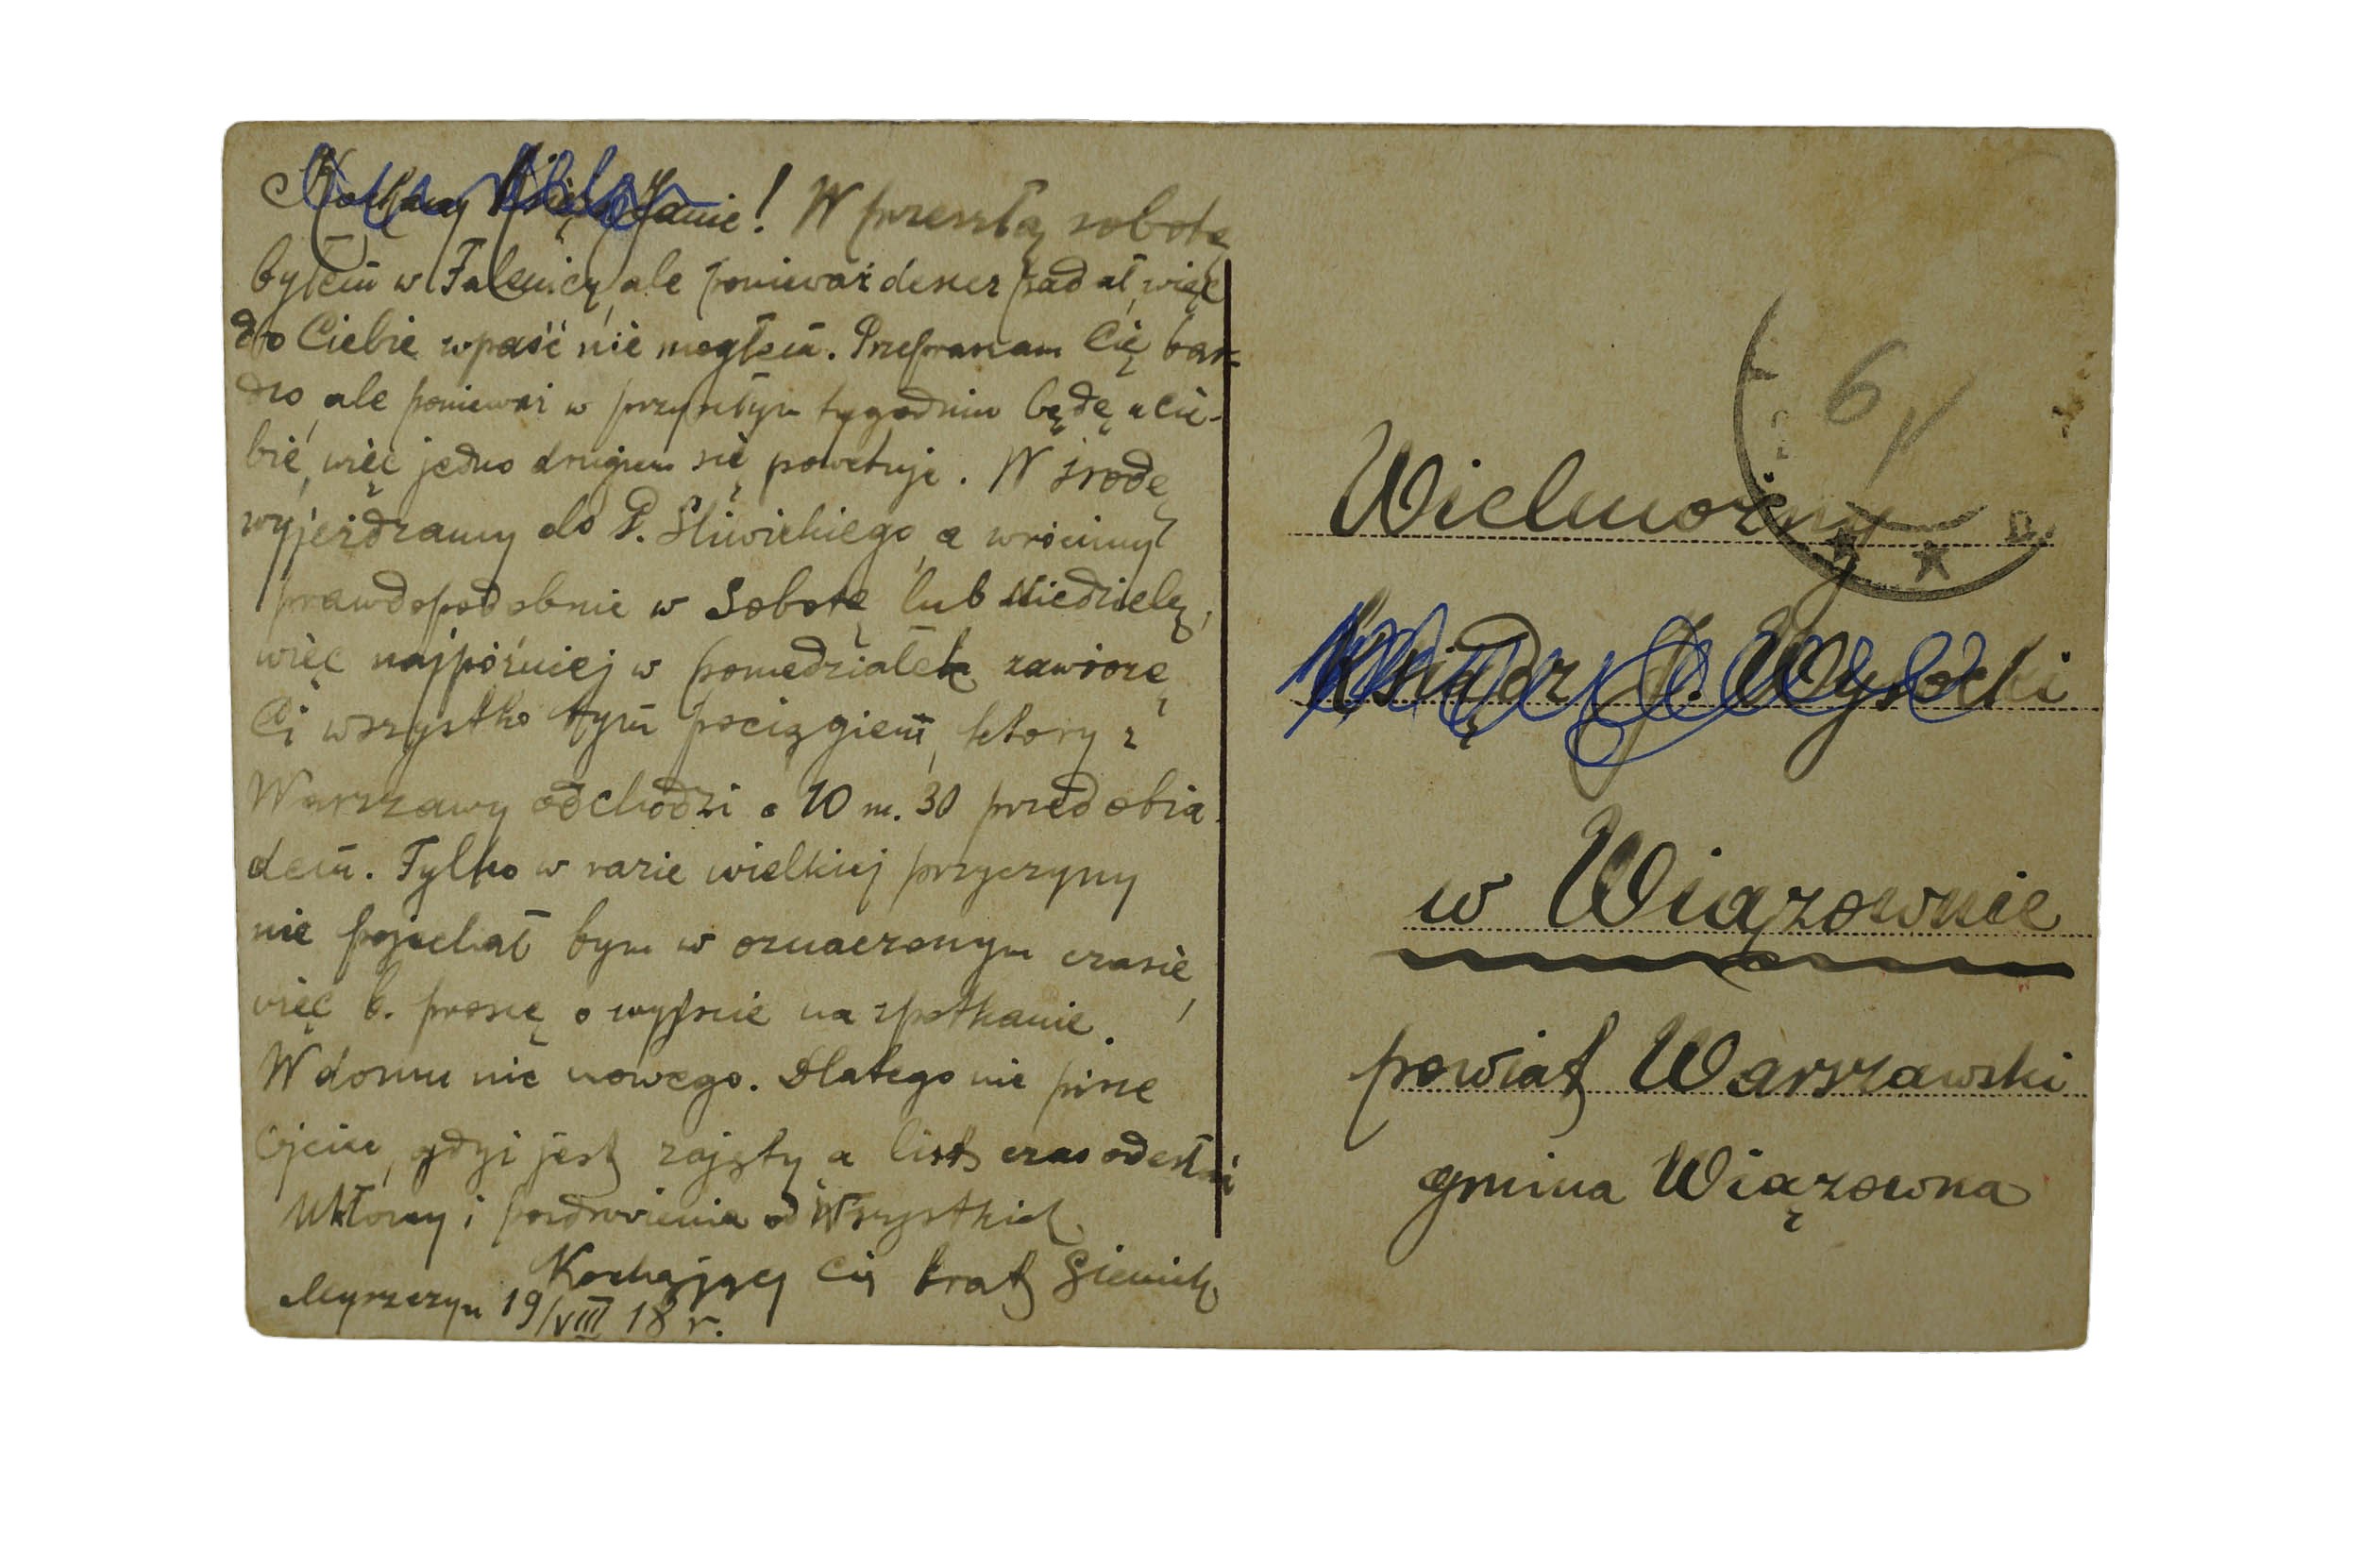 Kochany Księże Janie! W przeszłą sobotę
byłem w Falenicy, ale ponieważ deszcz padał, więc
do Ciebie wpaść nie mogłem. Przepraszam Cię bar-
dzo, ale ponieważ w przyszłym tygodniu będę u Cie-
bie, więc jedno drugiem się powetuje. W środę
wyjeżdżamy do P. Śliwickiego, a wrócimy
prawdopodobnie w Sobotę lub Niedzielę,
więc najpóźniej w poniedziałek zawiozę
Ci wszystko tym pociągiem, który z
Warszawy odchodzi o 10 m. 30 przed obia-
dem. Tylko w razie wielkiej przyczyny
nie pojechał bym w oznaczonym czasie,
więc b. proszę o wyjście na spotkanie.
W domu nic nowego. Dlatego nie pisze
Ojciec, gdyż jest zajęty a list czas odesłać
Ukłony i pozdrowienia od Wszystkich
Kochający Cię brat Gienick
19/VIII 18 r.
6/V
Wielmożny
Ksiądz J. Wysocki
w Wiązownie
powiat Warszawski
gmina Wiązowna